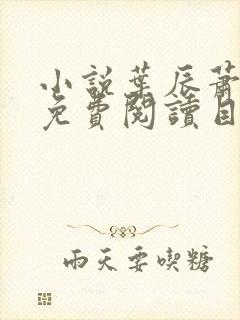 小說葉辰蕭
免費閱讀目
雨天要喫糖